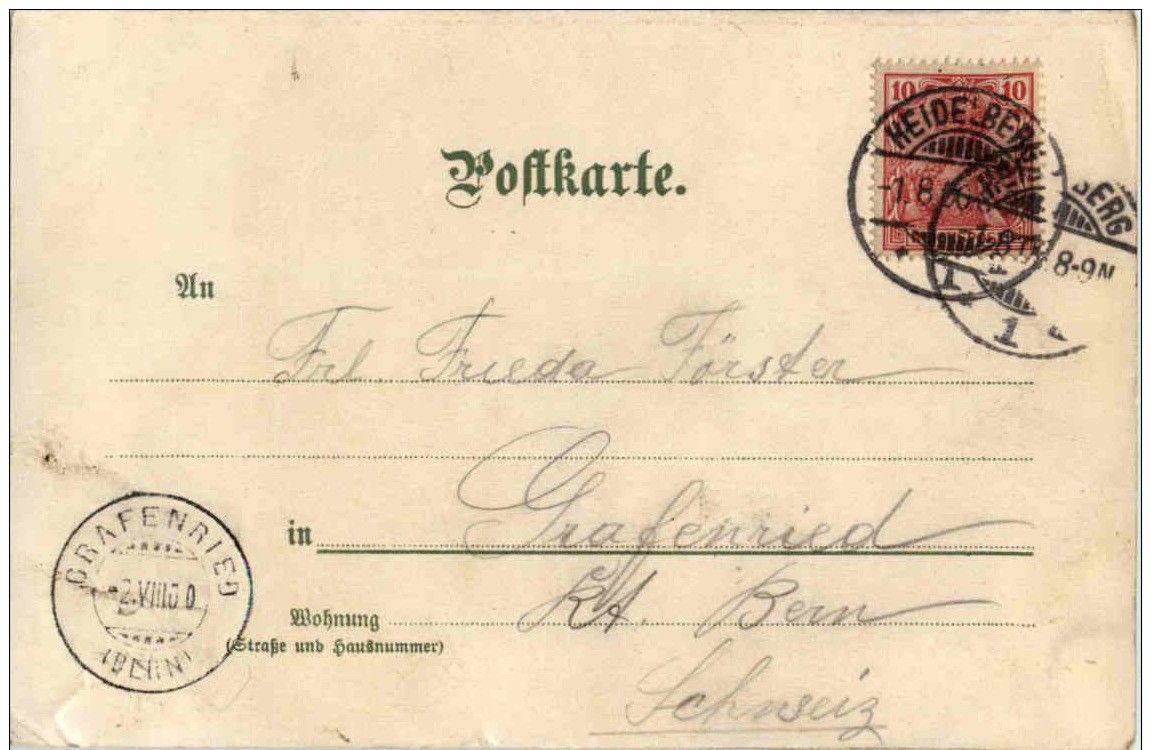 10 10
HEIDELBERG
-1.8.00
1.
BERG
8-9N
1
Postkarte.
An
Frl. Frieda Förster
in Grafenried
Wohnung Kt. Bern
(Straße und Hausnummer)
Schweiz
GRAFENRIED
-2.VIII.00
(BERN)